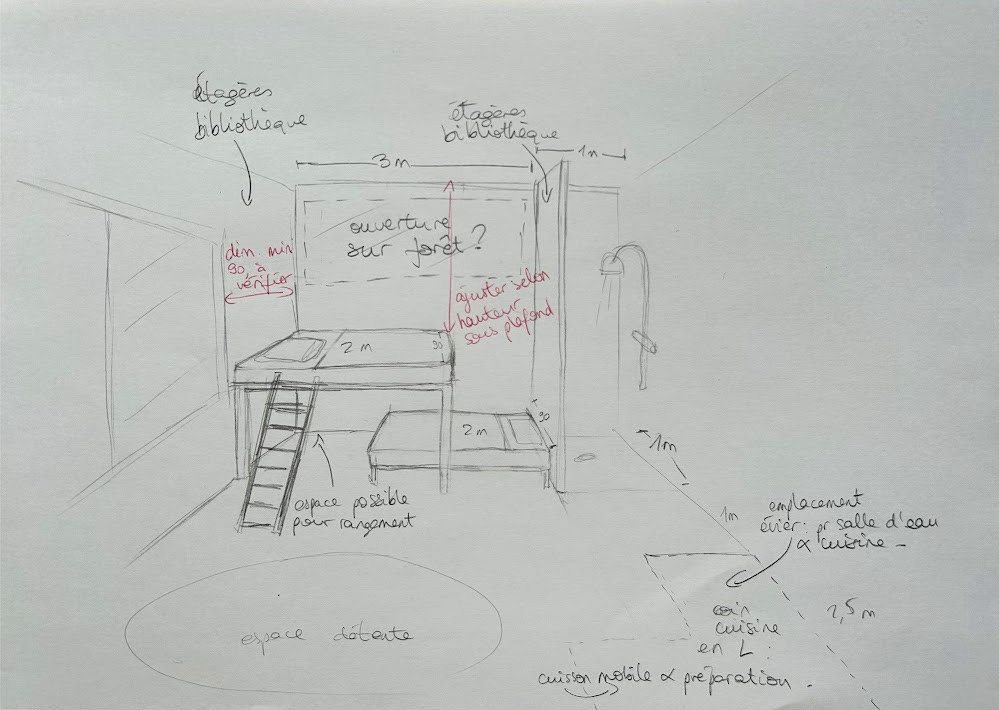 étagères
bibliothèque
étagères
bibliothèque
3 m
1m
ouverture
sur forêt ?
dim. min
90, à
vérifier
ajuster selon
hauteur
sous plafond
2 m
90
2 m
90
espace possible
pour rangement
1m
1m
emplacement
évier: pr salle d'eau
& cuisine -
coin
cuisine
en L
2,5 m
cuisson mobile & préparation.
espace détente